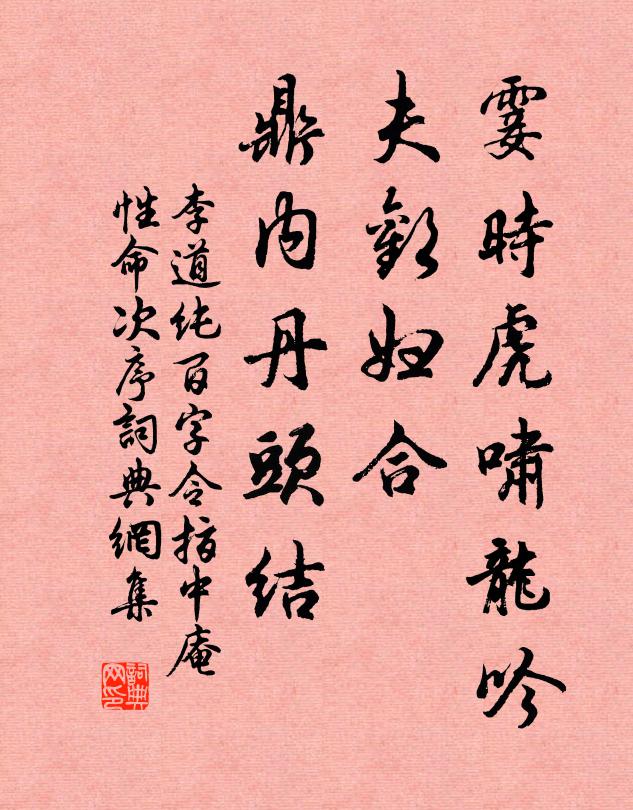 霎時虎嘯龍吟
夫歡婦合
鼎內丹頭結
李道純百字令指中庵
性命次序詞典網集
詞典網印